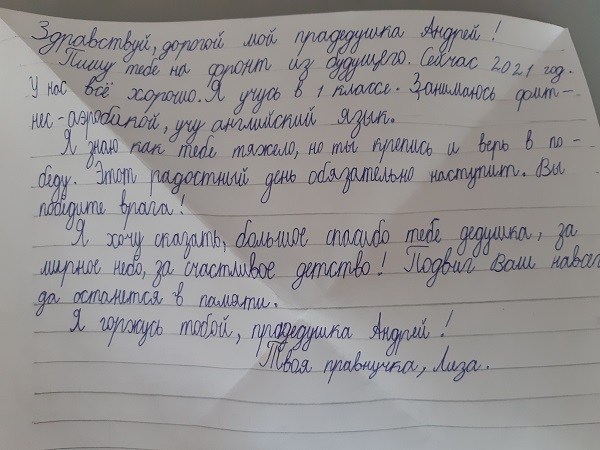 Здравствуй, дорогой мой прадедушка Андрей!
Пишу тебе на фронт из будущего. Сейчас 2021 год.
У нас всё хорошо. Я учусь в 1 классе. Занимаюсь фит-
нес-аэробикой, учу английский язык.
Я знаю как тебе тяжело, но ты крепись и верь в по-
беду. Этот радостный день обязательно наступит. Вы
победите врага!
Я хочу сказать, большое спасибо тебе дедушка, за
мирное небо, за счастливое детство! Подвиг Ваш навсег
да останется в памяти.
Я горжусь тобой, прадедушка Андрей!
Твоя правнучка, Лиза.